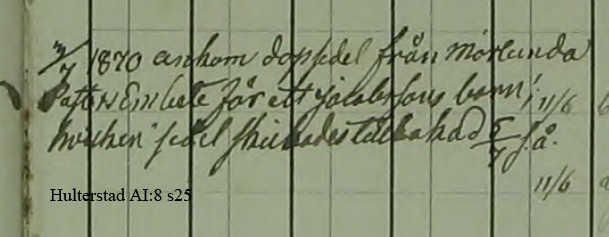 3/7 1870 ankom dopsedel från Mörlunda
Past: Embete för ett Jacobsons barn! 11/6
hvilken sedel skickades tillbakad 5/7 s.å.
11/6
Hulterstad AI:8 s25